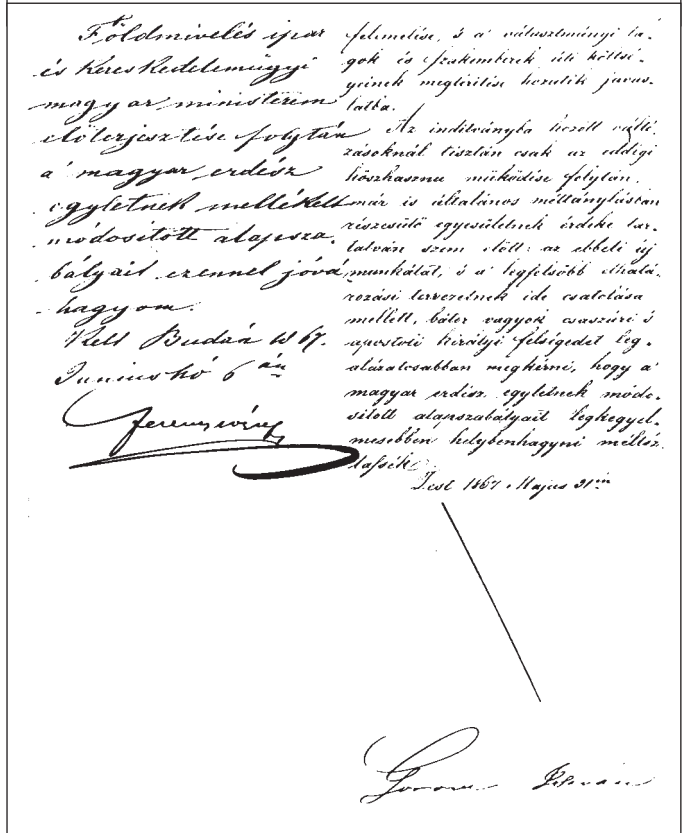 Földmivelés ipar
és Kereskedelemügyi
magyar ministerem
előterjesztése folytán
a' magyar erdész
egyletnek mellékelt
módositott alapsza-
bályait ezennel jóvá
hagyom.
Kelt Budán 1867.
Junius hó 6 án
Ferencz József
felemelése, s a' választmányi ta-
gok és szakemberek úti költsé-
geinek megtérítése hozatik javas-
latba.
Az inditványba hozottválto-
zásoknál tisztán csak az eddigi
közhasznu működése folytán
már is általános méltánylásban
részesülő egyesületnek érdeke tar-
tatván szem előtt: az ebbeli új
munkálat, s a' legfelsőbb elhatá-
rozási tervezetnek ide csatolása
mellett, bátor vagyok császári s
apostoli királyi felségedet leg-
alázatosabban megkérni, hogy a'
magyar erdész egyletnek módo-
sitott alapszabályait legkegyel-
mesebben helybenhagyni méltóz-
tassék.
Pest 1867 Majus 31 én
Gorove István